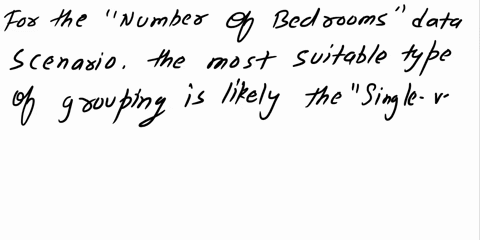 For the "Number of Bedrooms" data
Scenario. the most suitable type
of grouping is likely the "Single-v